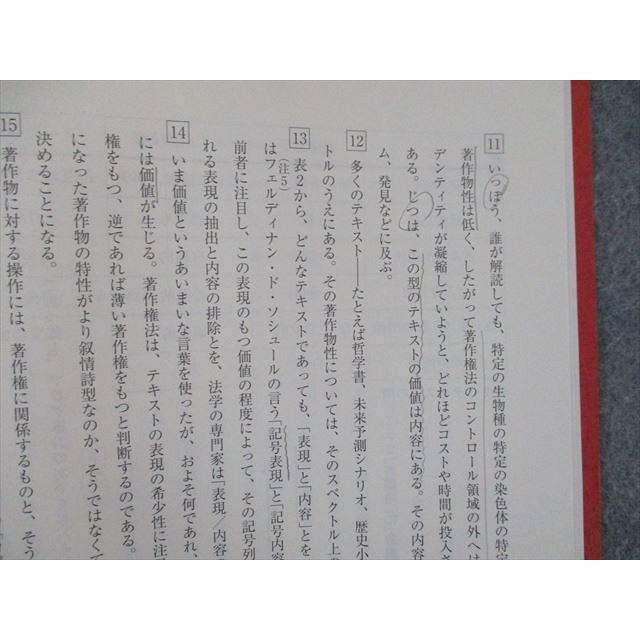 11 いっぽう、誰が解読しても、特定の生物種の特定の染色体の特定
著作物性は低く、したがって著作権法のコントロール領域の外へは
デンティティが凝縮していようと、どれほどコストや時間が投入さ
ある。じつは、この型のテキストの価値は内容にある。その内容
ム、発見などに及ぶ。
12 多くのテキスト――たとえば哲学書、未来予測シナリオ、歴史小
トルのうえにある。その著作物性については、そのスペクトル上
13 表2から、どんなテキストであっても、「表現」と「内容」とを
はフェルディナン・ド・ソシュールの言う「記号表現」と「記号内容
(注5)
前者に注目し、この表現のもつ価値の程度によって、その記号列
れる表現の抽出と内容の排除とを、法学の専門家は「表現/内容
14 いま価値というあいまいな言葉を使ったが、およそ何であれ、
には価値が生じる。著作権法は、テキストの表現の希少性に注
権をもつ、逆であれば薄い著作権をもつと判断するのである。
になった著作物の特性がより叙情詩型なのか、そうではなくて
決めることになる。
15 著作物に対する操作には、著作権に関係するものと、そう